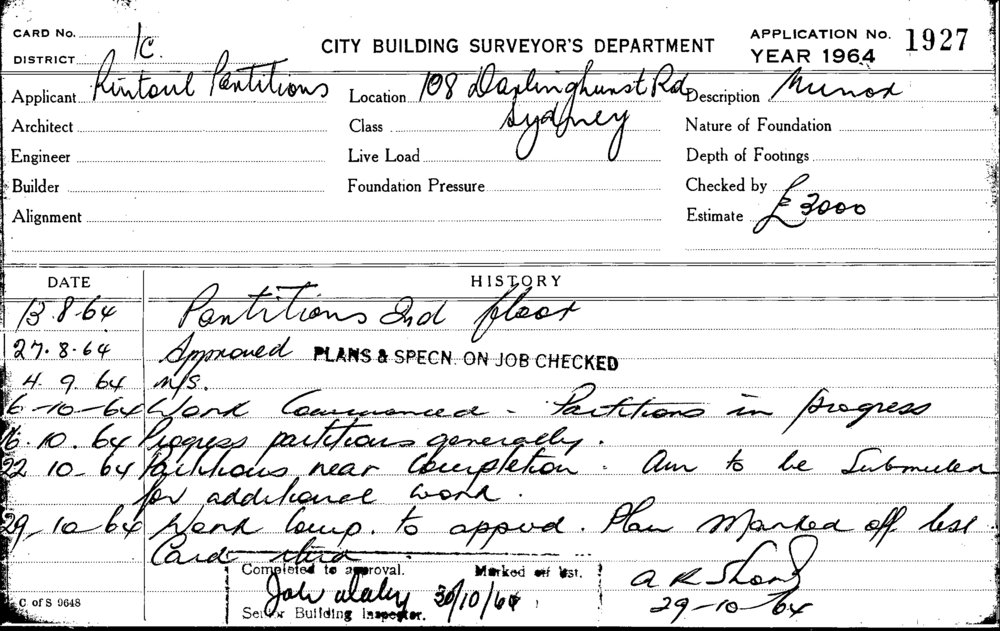 CARD No.
1C.
DISTRICT
CITY BUILDING SURVEYOR'S DEPARTMENT
APPLICATION No. 1927
YEAR 1964
Applicant Rintoul Partitions
Location 108 Darlinghurst Rd
Sydney
Description Minor
Architect
Class
Nature of Foundation
Engineer
Live Load
Depth of Footings
Builder
Foundation Pressure
Checked by
Alignment
Estimate £3000
DATE HISTORY
13.8.64 Partitions 2nd floor
27.8.64 Approved PLANS & SPECN. ON JOB CHECKED
4.9.64 n/s.
6-10-64 Work Commenced - Partitions in progress
16.10.64 Progress partitions generally.
22.10-64 Partitions near Completion. Am to be Submitted
for additional work.
29-10-64 Work Comp. to approd. Plan Marked off list.
Card
Completed to approval. Marked off list.
30/10/64
Senior Building Inspector.
29-10-64
C of S 9648